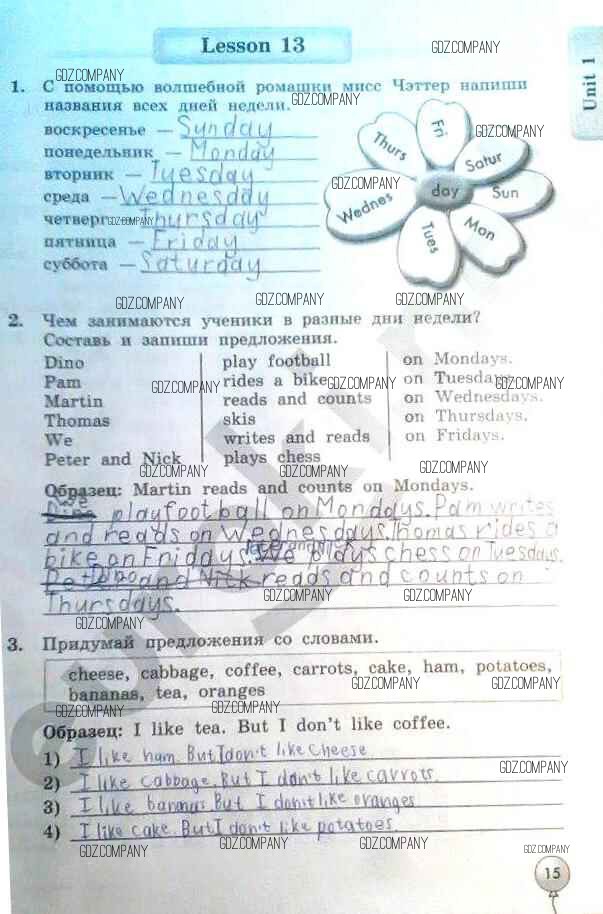 Lesson 13
Unit 1
1. С помощью волшебной ромашки мисс Чэттер напиши
названия всех дней недели.
воскресенье — Sunday
понедельник — Monday
вторник — Tuesday
среда — Wednesday
четверг — Thursday
пятница — Friday
суббота — Saturday
Fri
Thurs
Satur
Wednes
day
Sun
Tues
Mon
2. Чем занимаются ученики в разные дни недели?
Составь и запиши предложения.
Dino play football on Mondays.
Pam rides a bike on Tuesdays.
Martin reads and counts on Wednesdays.
Thomas skis on Thursdays.
We writes and reads on Fridays.
Peter and Nick plays chess
Образец: Martin reads and counts on Mondays.
We play football on Mondays. Pam writes
and reads on Wednesdays. Thomas rides a
bike on Fridays. plays chess on Tuesdays.
and Nick reads and counts on
Thursdays.
3. Придумай предложения со словами.
cheese, cabbage, coffee, carrots, cake, ham, potatoes,
bananas, tea, oranges
Образец: I like tea. But I don't like coffee.
1) I like ham. But I don't like Cheese
2) I like cabbage. But I don't like carrots.
3) I like bananas. But I don't like oranges
4) I like cake. But I don't like potatoes.
15
GDZ.COMPANY